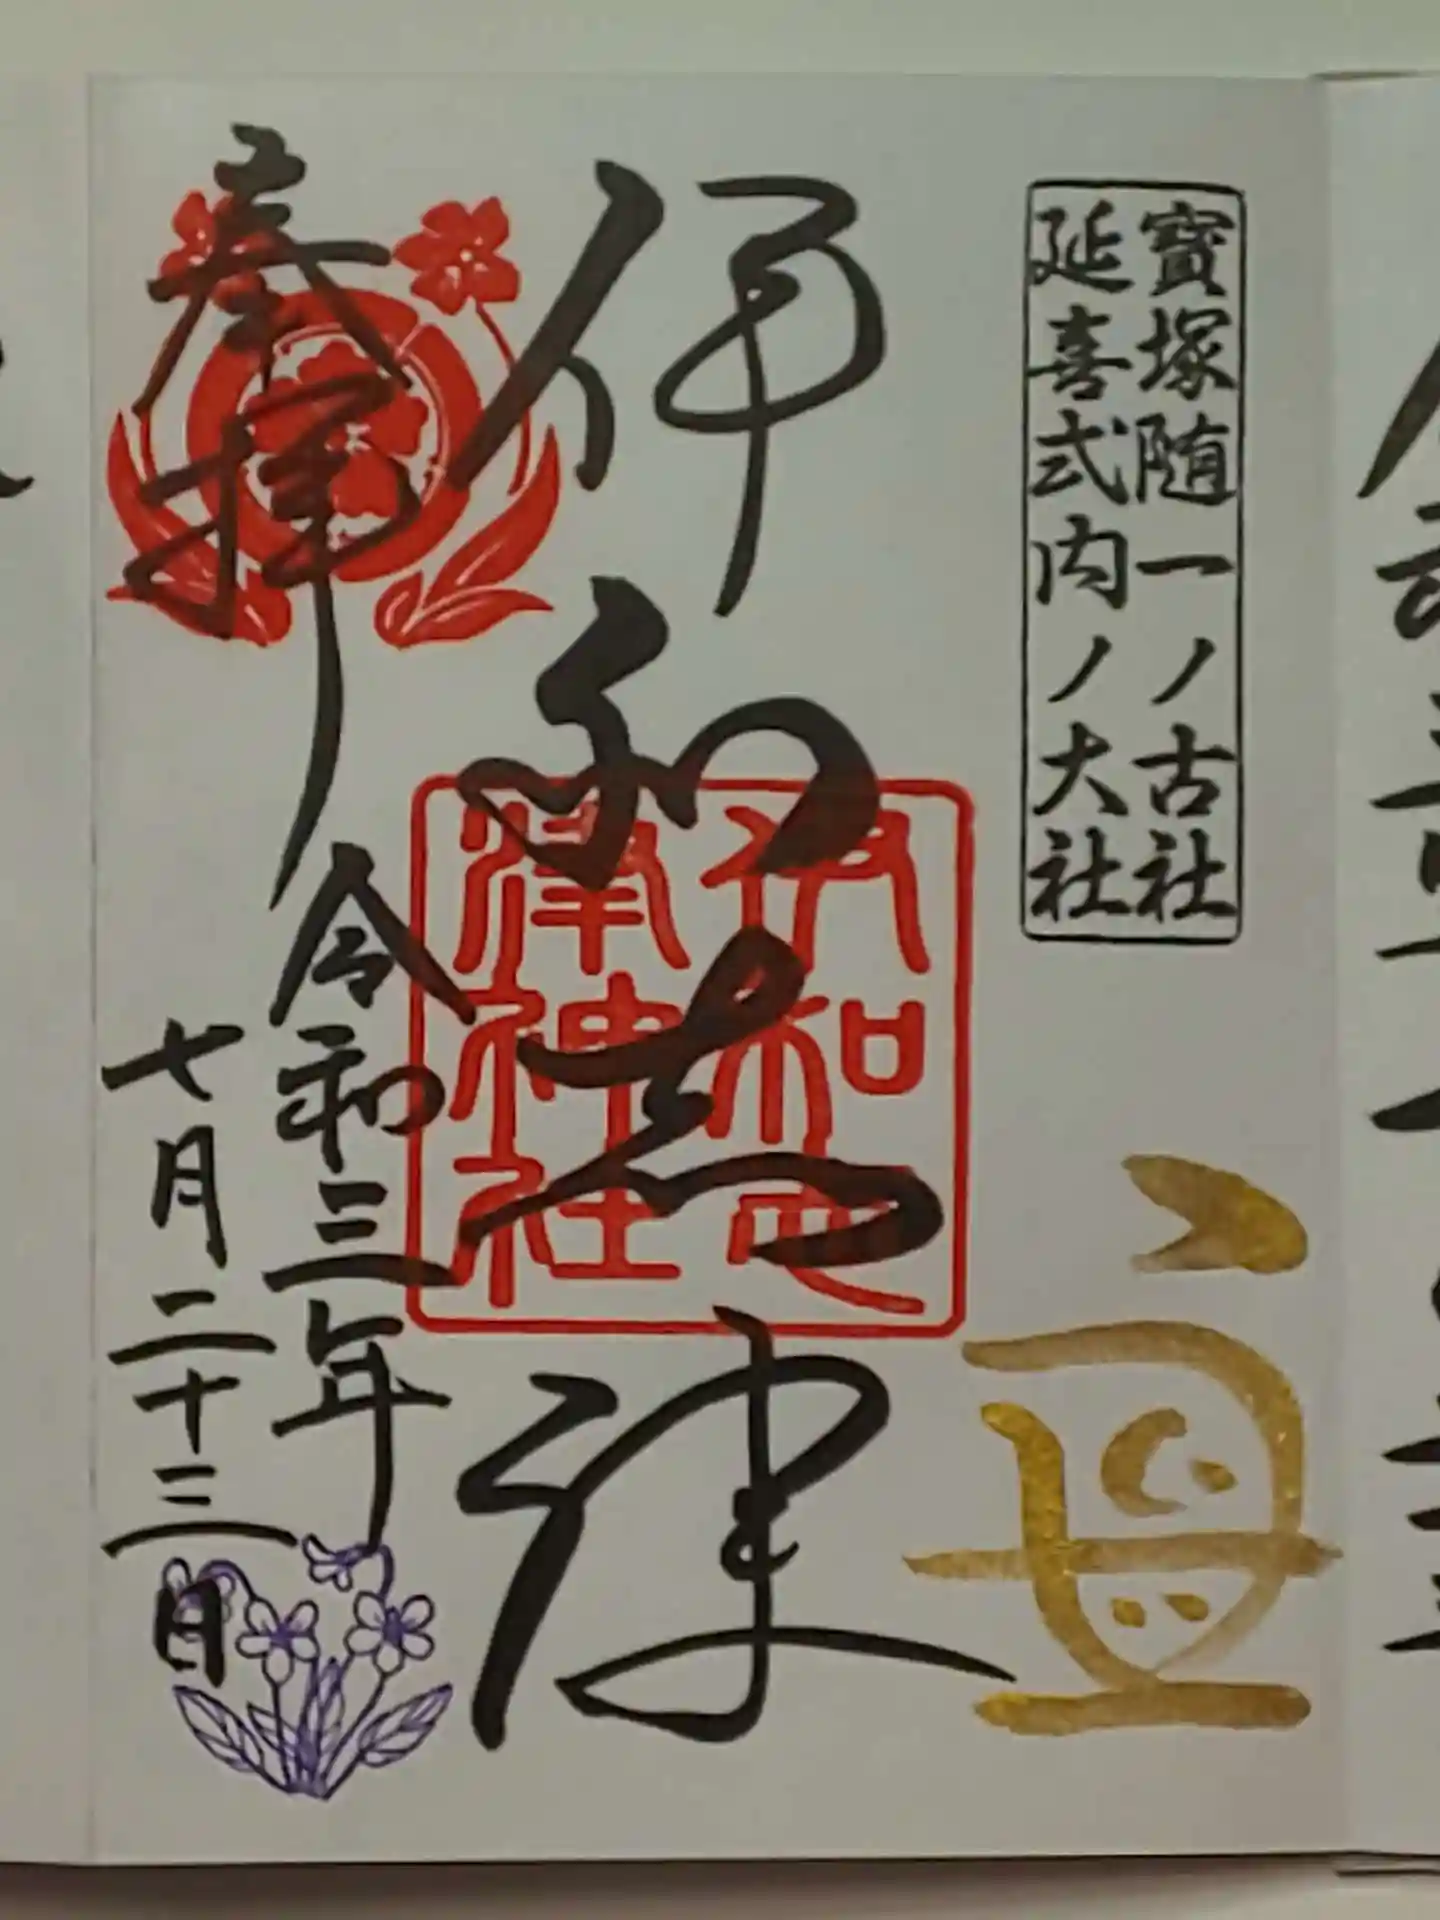 寳塚随一ノ古社
延喜式内ノ大社
伊和志津
伊和志
津神社
奉拝
令和三年
七月二十三日